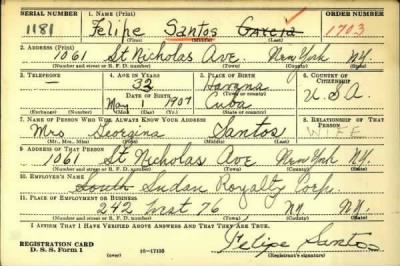 SERIAL NUMBER 1. NAME (Print) ORDER NUMBER
1181 Felipe Santos Garcia 1703
(First) (Middle) (Last)
2. ADDRESS (Print)
1061 St Nicholas Ave. New York NY.
(Number and street or R. F. D. number) (Town) (County) (State)
3. TELEPHONE 4. AGE IN YEARS 5. PLACE OF BIRTH 6. COUNTRY OF CITIZENSHIP
— 33 Havana
DATE OF BIRTH (Town or county)
May 1 1907 Cuba U.S.A.
(Exchange) (Number) (Mo.) (Day) (Yr.) (State or country)
7. NAME OF PERSON WHO WILL ALWAYS KNOW YOUR ADDRESS 8. RELATIONSHIP OF THAT PERSON
Mrs Georgina Santos WIFE
(Mr., Mrs., Miss) (First) (Middle) (Last)
9. ADDRESS OF THAT PERSON
1061 St Nicholas Ave New York NY.
(Number and street or R. F. D. number) (Town) (County) (State)
10. EMPLOYER'S NAME
South Sudan Royalty Corp.
11. PLACE OF EMPLOYMENT OR BUSINESS
242 West 76 NY. NY.
(Number and street or R. F. D. number) (Town) (County) (State)
I AFFIRM THAT I HAVE VERIFIED ABOVE ANSWERS AND THAT THEY ARE TRUE.
REGISTRATION CARD
D. S. S. Form 1 16—17105 Felipe Santos
(Registrant's signature)